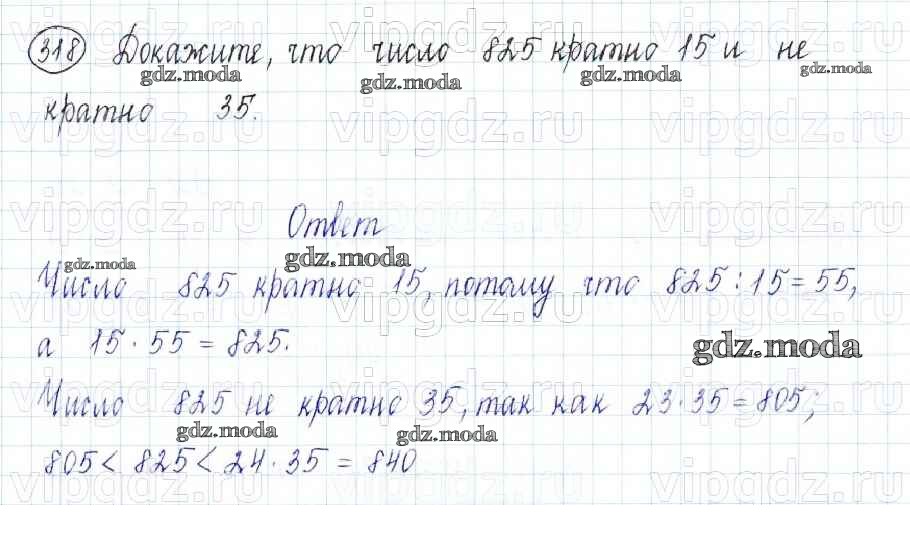 318 Докажите, что число 825 кратно 15 и не
кратно 35.
Ответ
Число 825 кратно 15, потому что 825 : 15 = 55,
а 15 · 55 = 825.
Число 825 не кратно 35, так как 23 · 35 = 805;
805 < 825 < 24 · 35 = 840
gdz.moda
vipgdz.ru